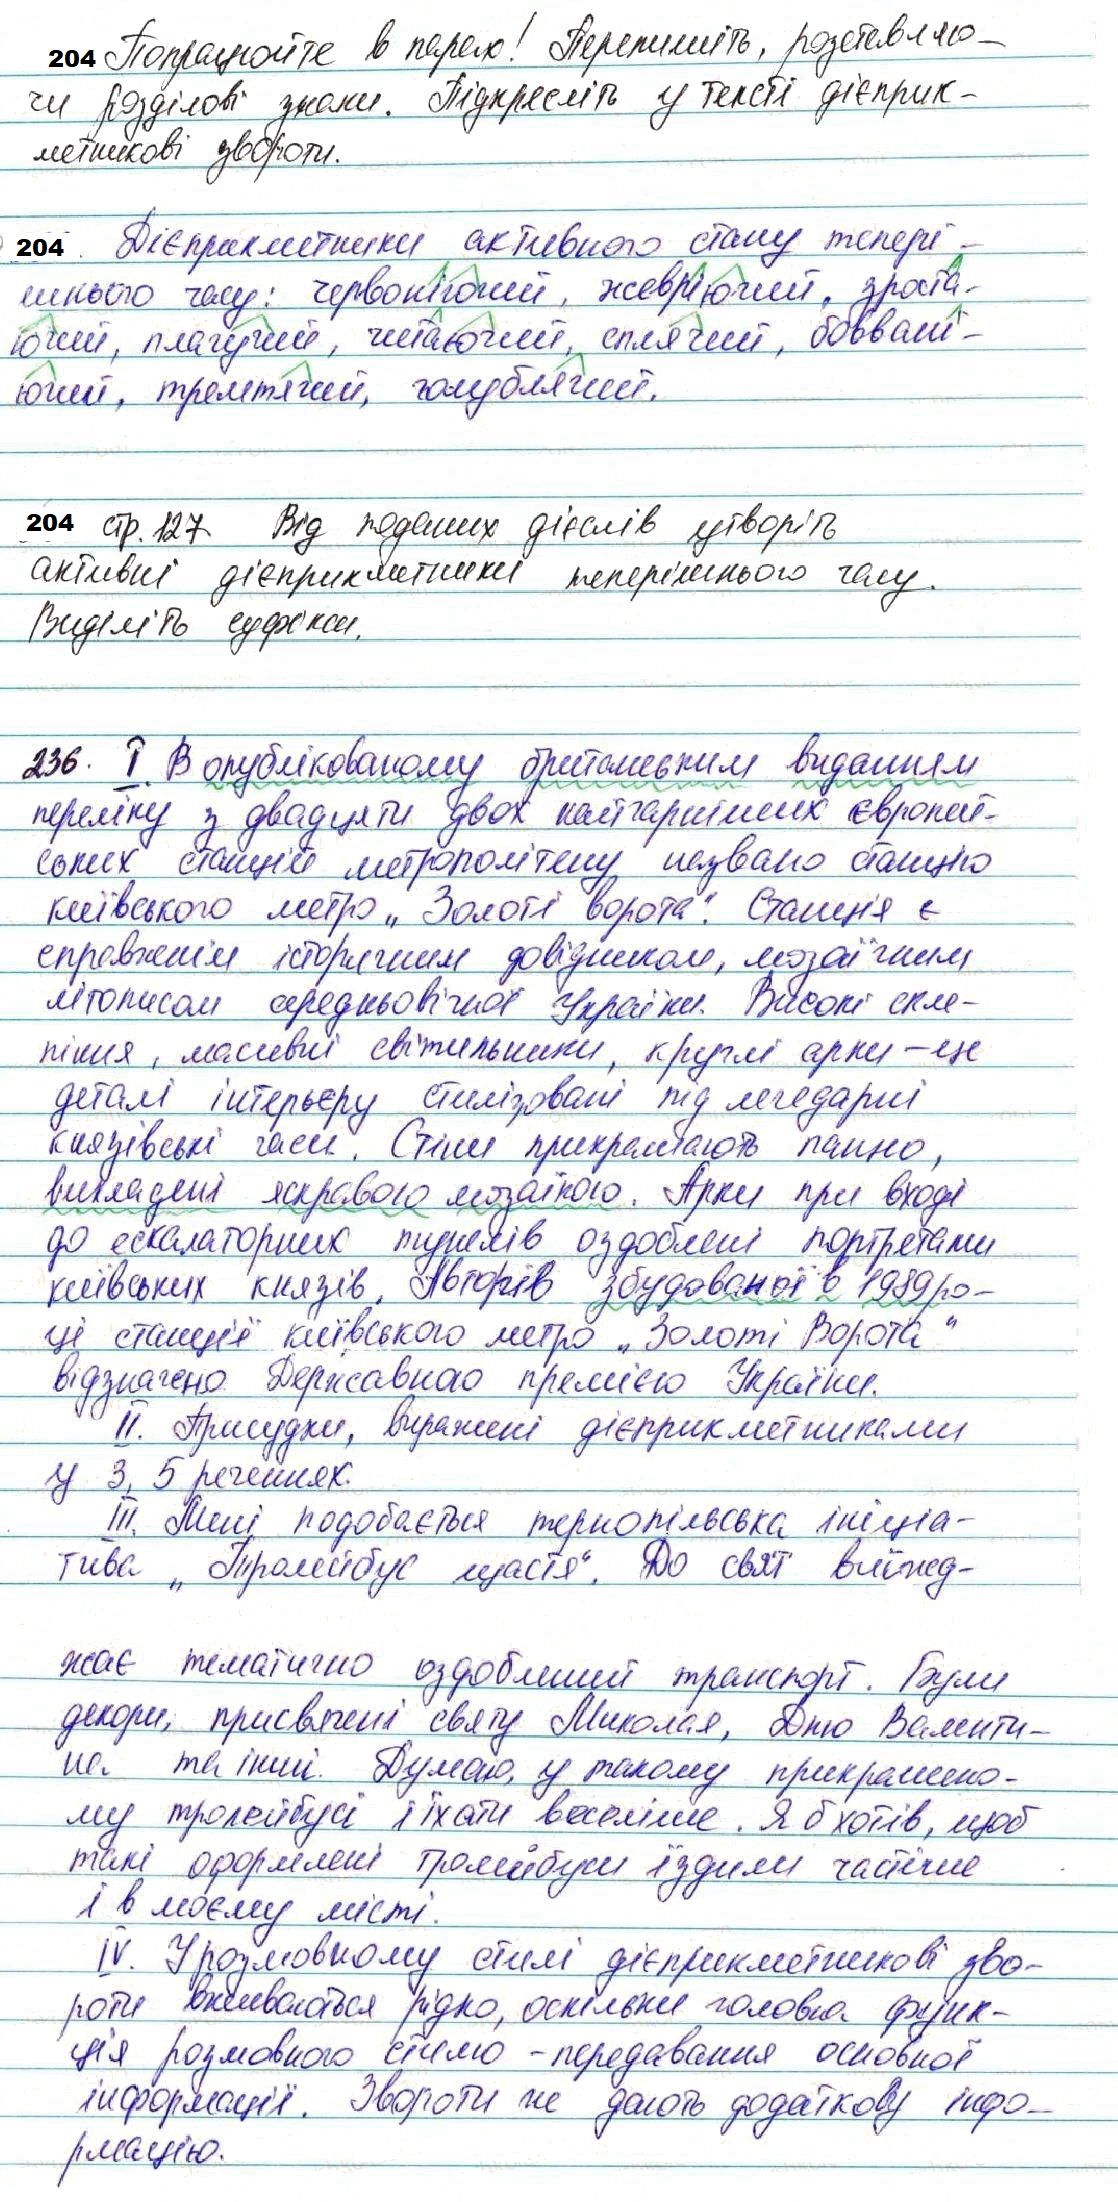 204 Попрацюйте в парах! Перепишіть, розставляю-
чи розділові знаки. Підкресліть у тексті дієприк-
метникові звороти.
204 . Дієприкметники активного стану тепері-
шнього часу: червоніючий, жевріючий, зроста-
ючий, плачучий, читаючий, сплячий, боввані-
ючий, тремтячий, голублячий.
204 стр. 127 Від поданих дієслів утворіть
активні дієприкметники теперішнього часу.
Виділіть суфікси.
236. I. В опублікованому британським виданням
переліку з двадцяти двох найгарніших європей-
ських станцій метрополітену названо станцію
київського метро „Золоті ворота". Станція є
справжнім історичним довідником, мозаїчним
літописом середньовічної України. Високі скле-
піння, масивні світильники, круглі арки – це
деталі інтерьєру стилізовані під легедарні
князівські часи. Стіни прикрашають панно,
викладені яскравою мозаїкою. Арки при вході
до ескалаторних тунелів оздоблені портретами
київських князів. Авторів збудованої в 1989 ро-
ці станції київського метро „Золоті Ворота"
відзначено Державною премією України.
II. Присудки, виражені дієприкметниками
у 3, 5 реченнях.
III. Мені подобається тернопільська ініціа-
тива „Тролейбус щастя". До свят виїжд-
жає тематично оздоблений транспорт. Були
декори, присвячені святу Миколая, Дню Валенти-
на та інші. Думаю, у такому прикрашено-
му тролейбусі і їхати веселіше. Я б хотів, щоб
такі оформлені тролейбуси їздили частіше
і в моєму місті.
IV. У розмовному стилі дієприкметникові зво-
роти вживаються рідко, оскільки головна функ-
ція розмовного стилю - передавання основної
інформації. Звороти не дають додаткову інфо-
рмацію.